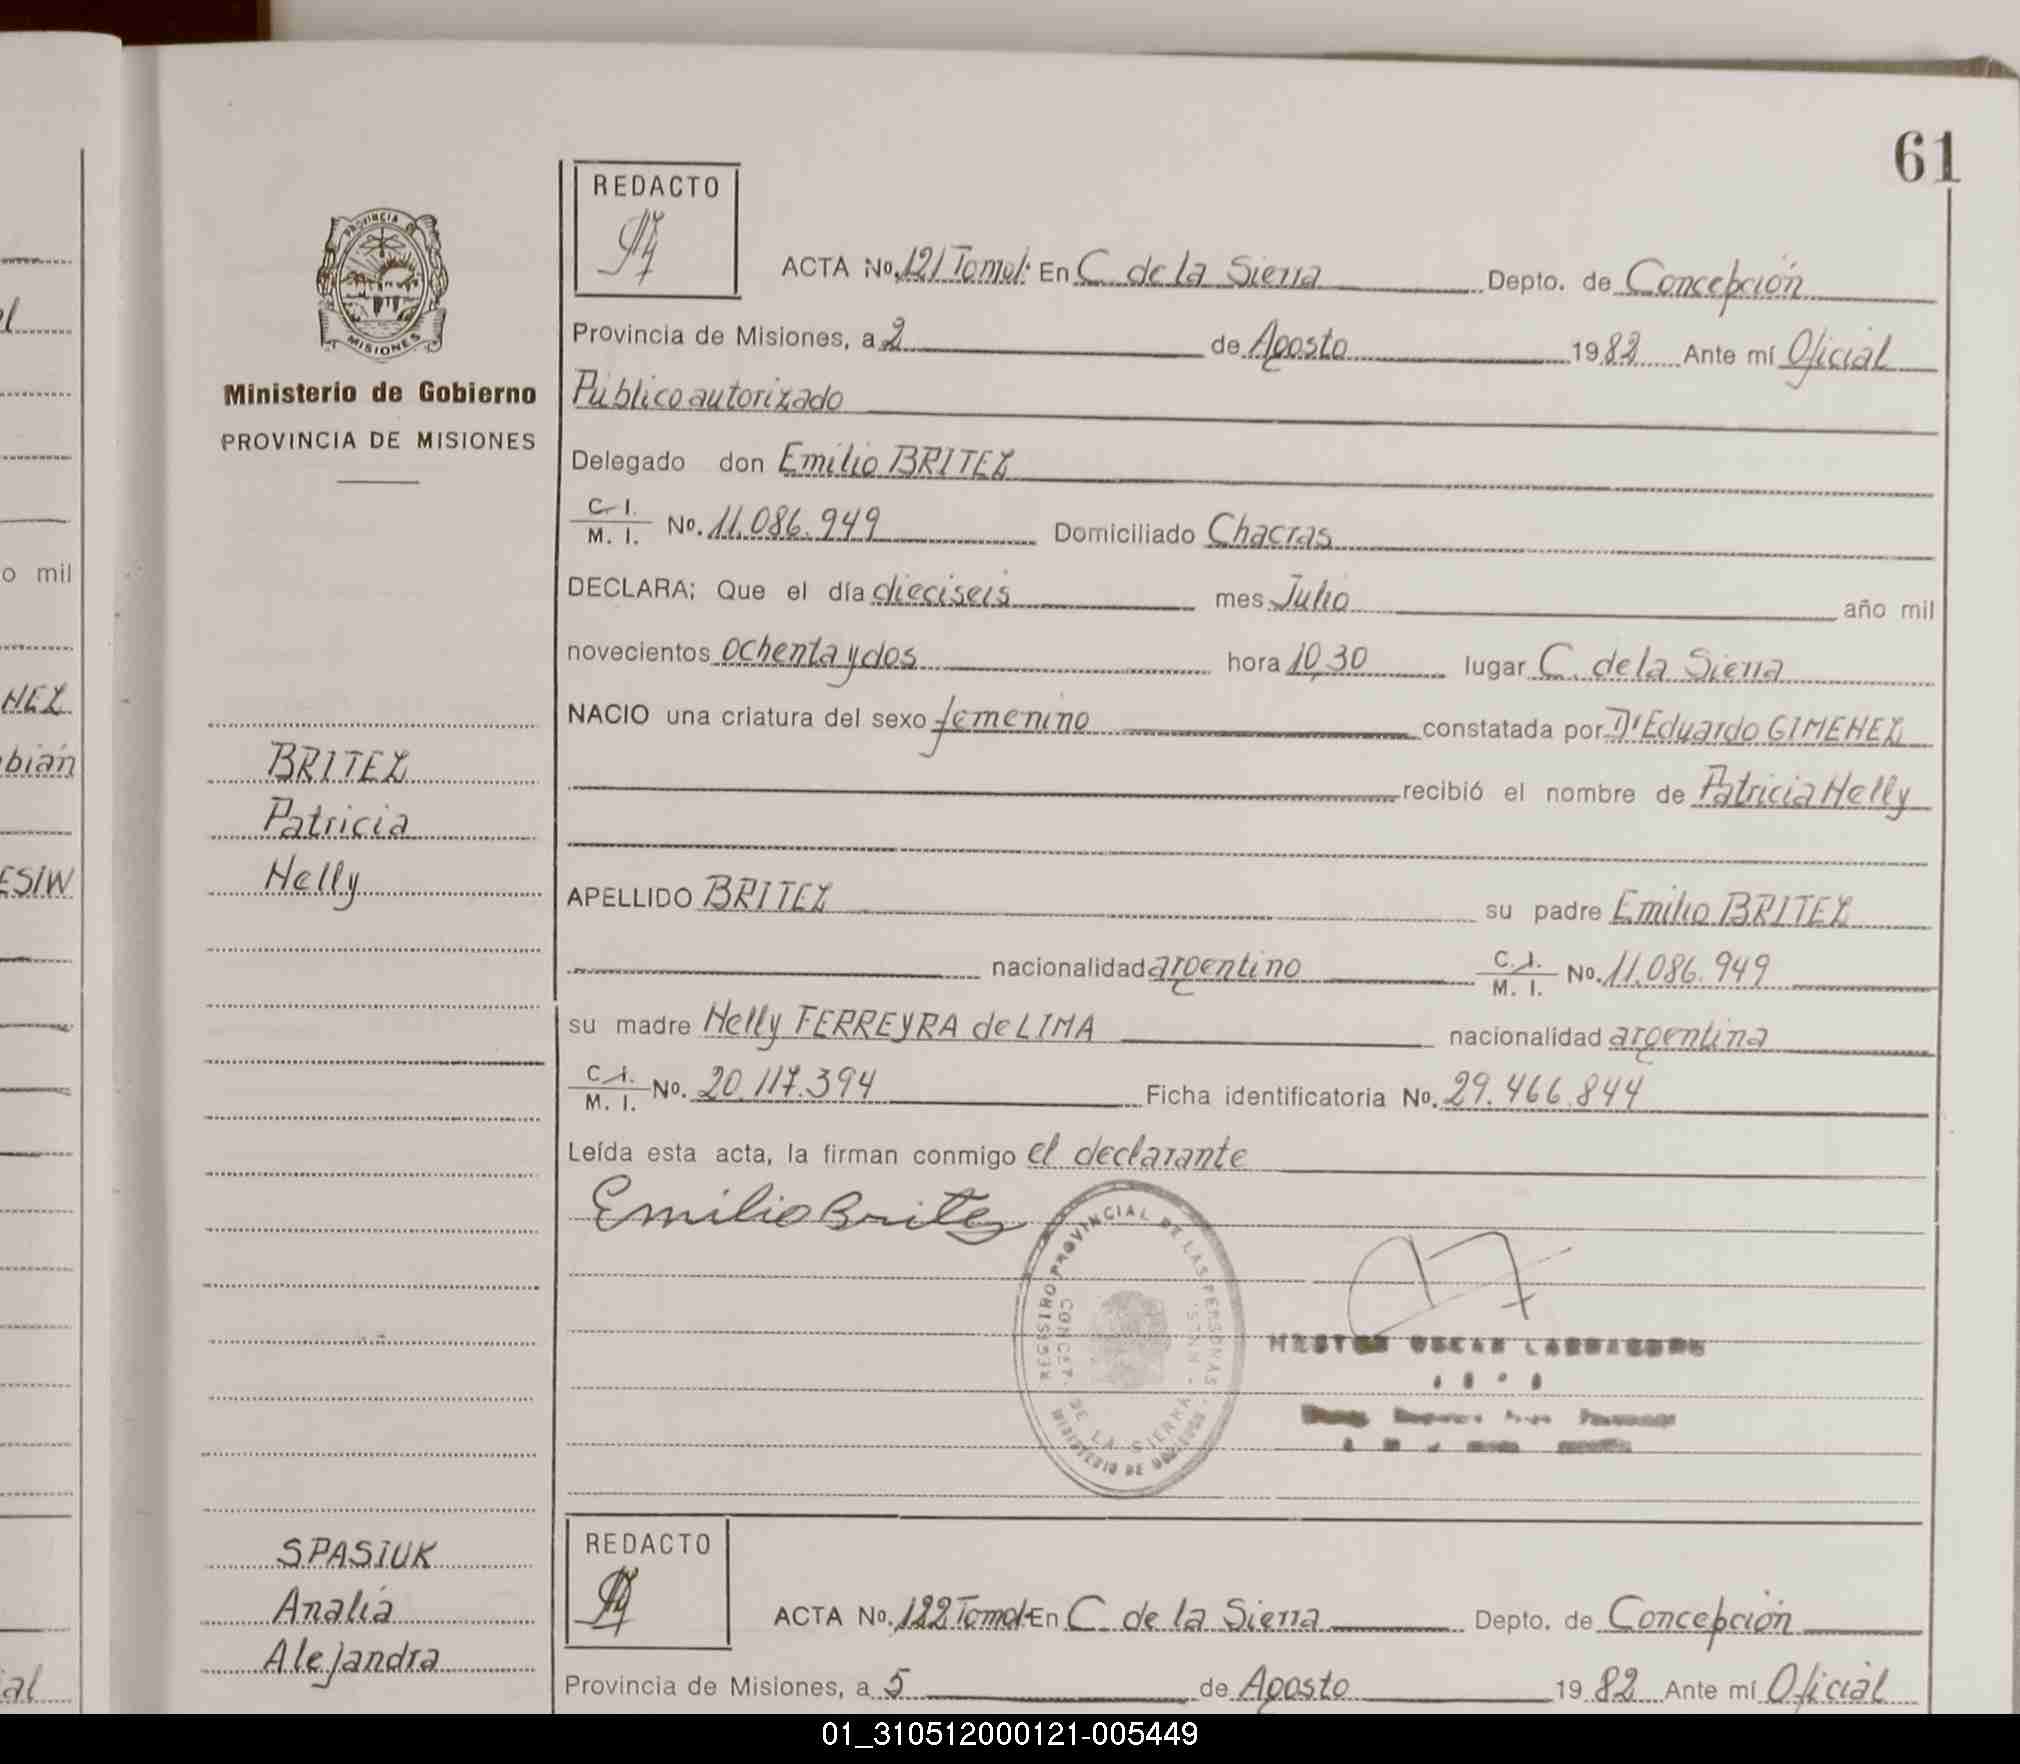 61
REDACTO
PROVINCIA DE
MISIONES
Ministerio de Gobierno
PROVINCIA DE MISIONES
ACTA No. 121 Tomo I. En C. de la Sierra Depto. de Concepción
Provincia de Misiones, a 2 de Agosto 1982 Ante mí Oficial
Público autorizado
Delegado don Emilio BRITEZ
C. I.
M. I. No. 11.086.949 Domiciliado Chacras
DECLARA; Que el día dieciseis mes Julio año mil
novecientos ochenta y dos hora 10,30 lugar C. de la Sierra
NACIO una criatura del sexo femenino constatada por Dr Eduardo GIMENEZ
recibió el nombre de Patricia Nelly
APELLIDO BRITEZ su padre Emilio BRITEZ
nacionalidad argentino C. I. M. I. No. 11.086.949
su madre Nelly FERREYRA de LIMA nacionalidad argentina
C. I.
M. I. No. 20.117.394 Ficha identificatoria No. 29.466.844
Leída esta acta, la firman conmigo el declarante
Emilio Britez
REGISTRO PROVINCIAL DE LAS PERSONAS
CONCEP. DE LA SIERRA
MINISTERIO DE GOBIERNO
OSCAR
BRITEZ
Patricia
Nelly
SPASIUK
Analía
Alejandra
REDACTO
ACTA No. 122 Tomo I En C. de la Sierra Depto. de Concepción
Provincia de Misiones, a 5 de Agosto 1982 Ante mí Oficial
o mil
NEZ
bián
ESIW
al
01_310512000121-005449